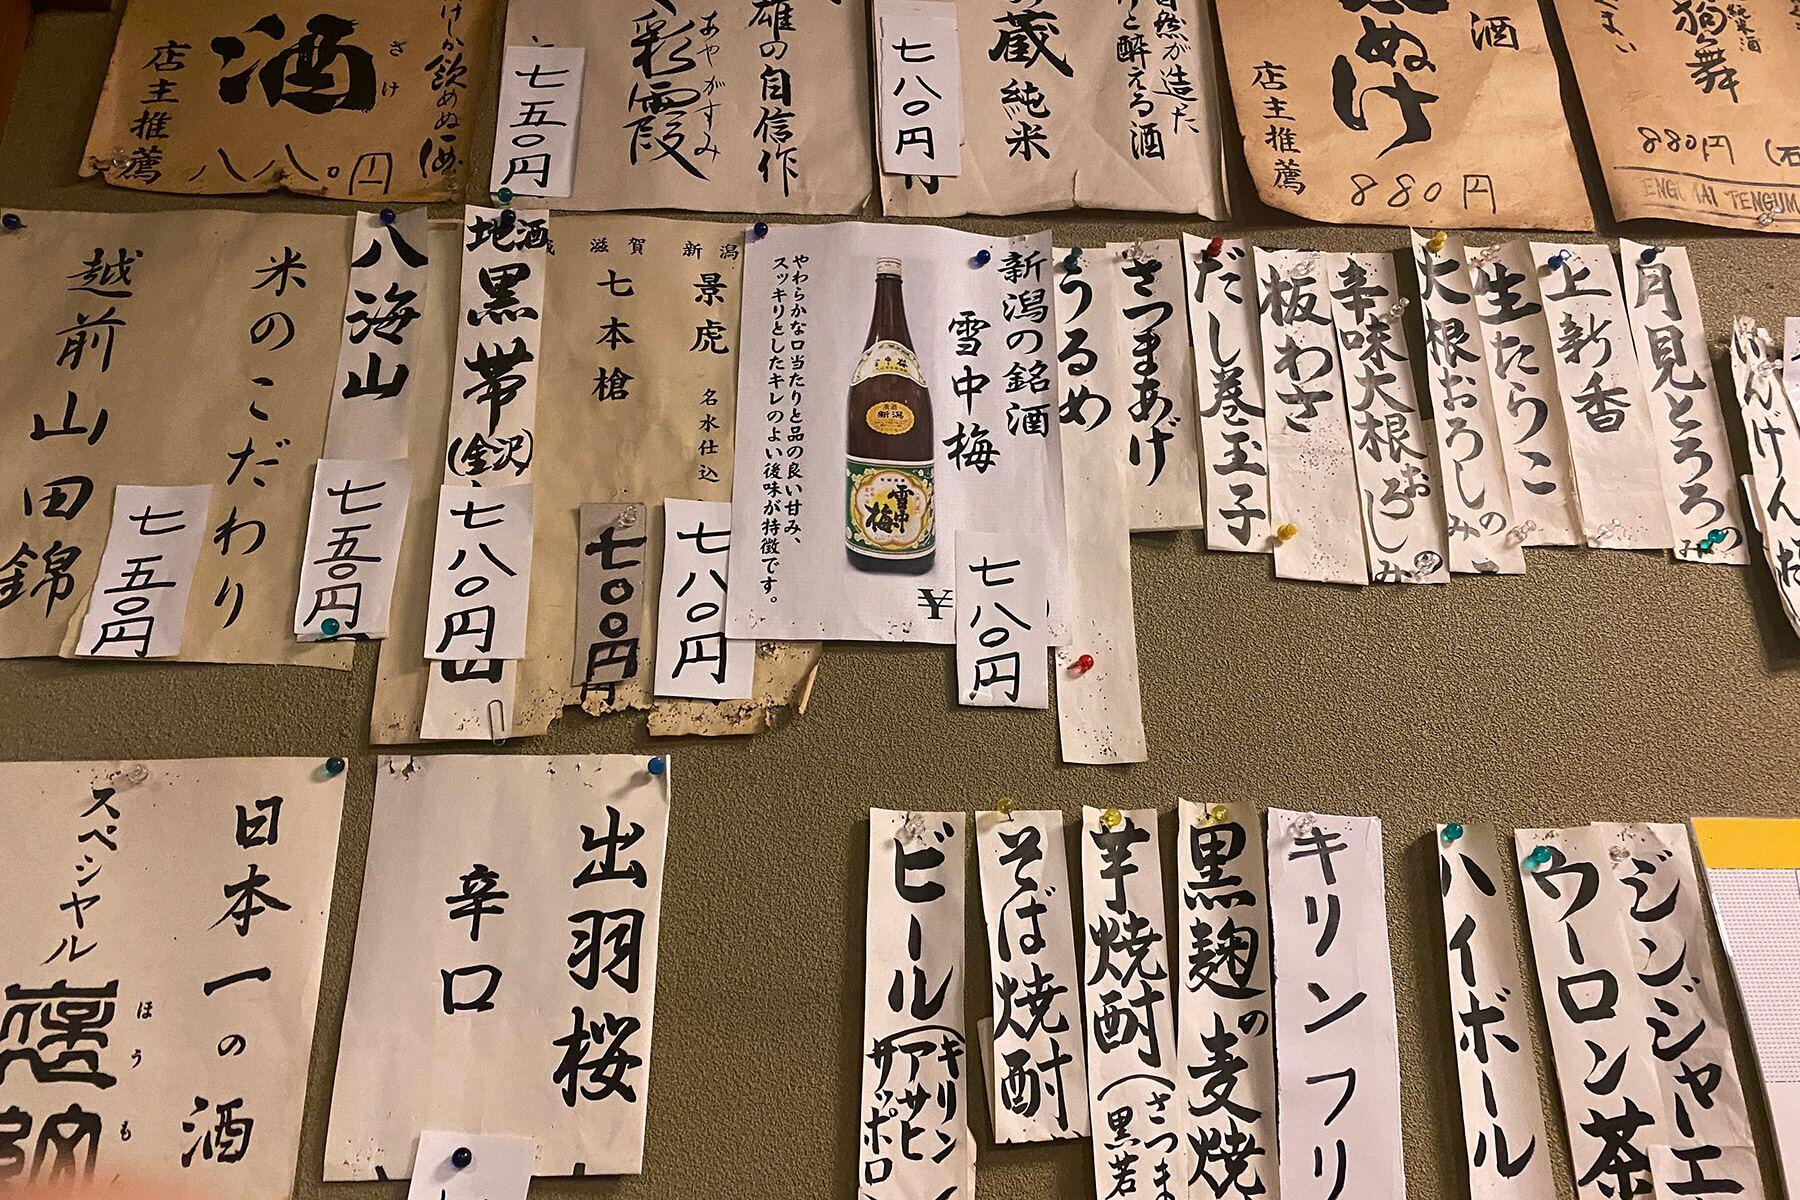 けしか飲めぬ酒
酒
ざけ
店主推薦
八八〇円
雄の自信作
あやがすみ
彩霞
七五〇円
自然が造った
と酔える酒
蔵純米
七八〇円
酒
ぬけ
店主推薦
880円
純米酒
狗舞
880円
米のこだわり
越前山田錦
七五〇円
八海山
七五〇円
地酒
黒帯
(金沢)
七八〇円
滋賀
七本槍
七〇〇円
新潟
景虎
名水仕込
七八〇円
新潟の銘酒
雪中梅
やわらかな口当たりと品の良い甘み、
スッキリとしたキレのよい後味が特徴です。
新潟
雪中梅
¥
七八〇円
うるめ
さつまあげ
だし巻玉子
板わさ
辛味大根おろし
大根おろし
生たらこ
上新香
月見とろろ
日本一の酒
スペシャル
ほうもん
出羽桜
辛口
ビール(キリン
アサヒ
サッポロ
そば焼酎
芋焼酎(さつま
黒若
黒麹の麦焼
キリンフリ
ハイボール
ウーロン茶
ジンジャーエ